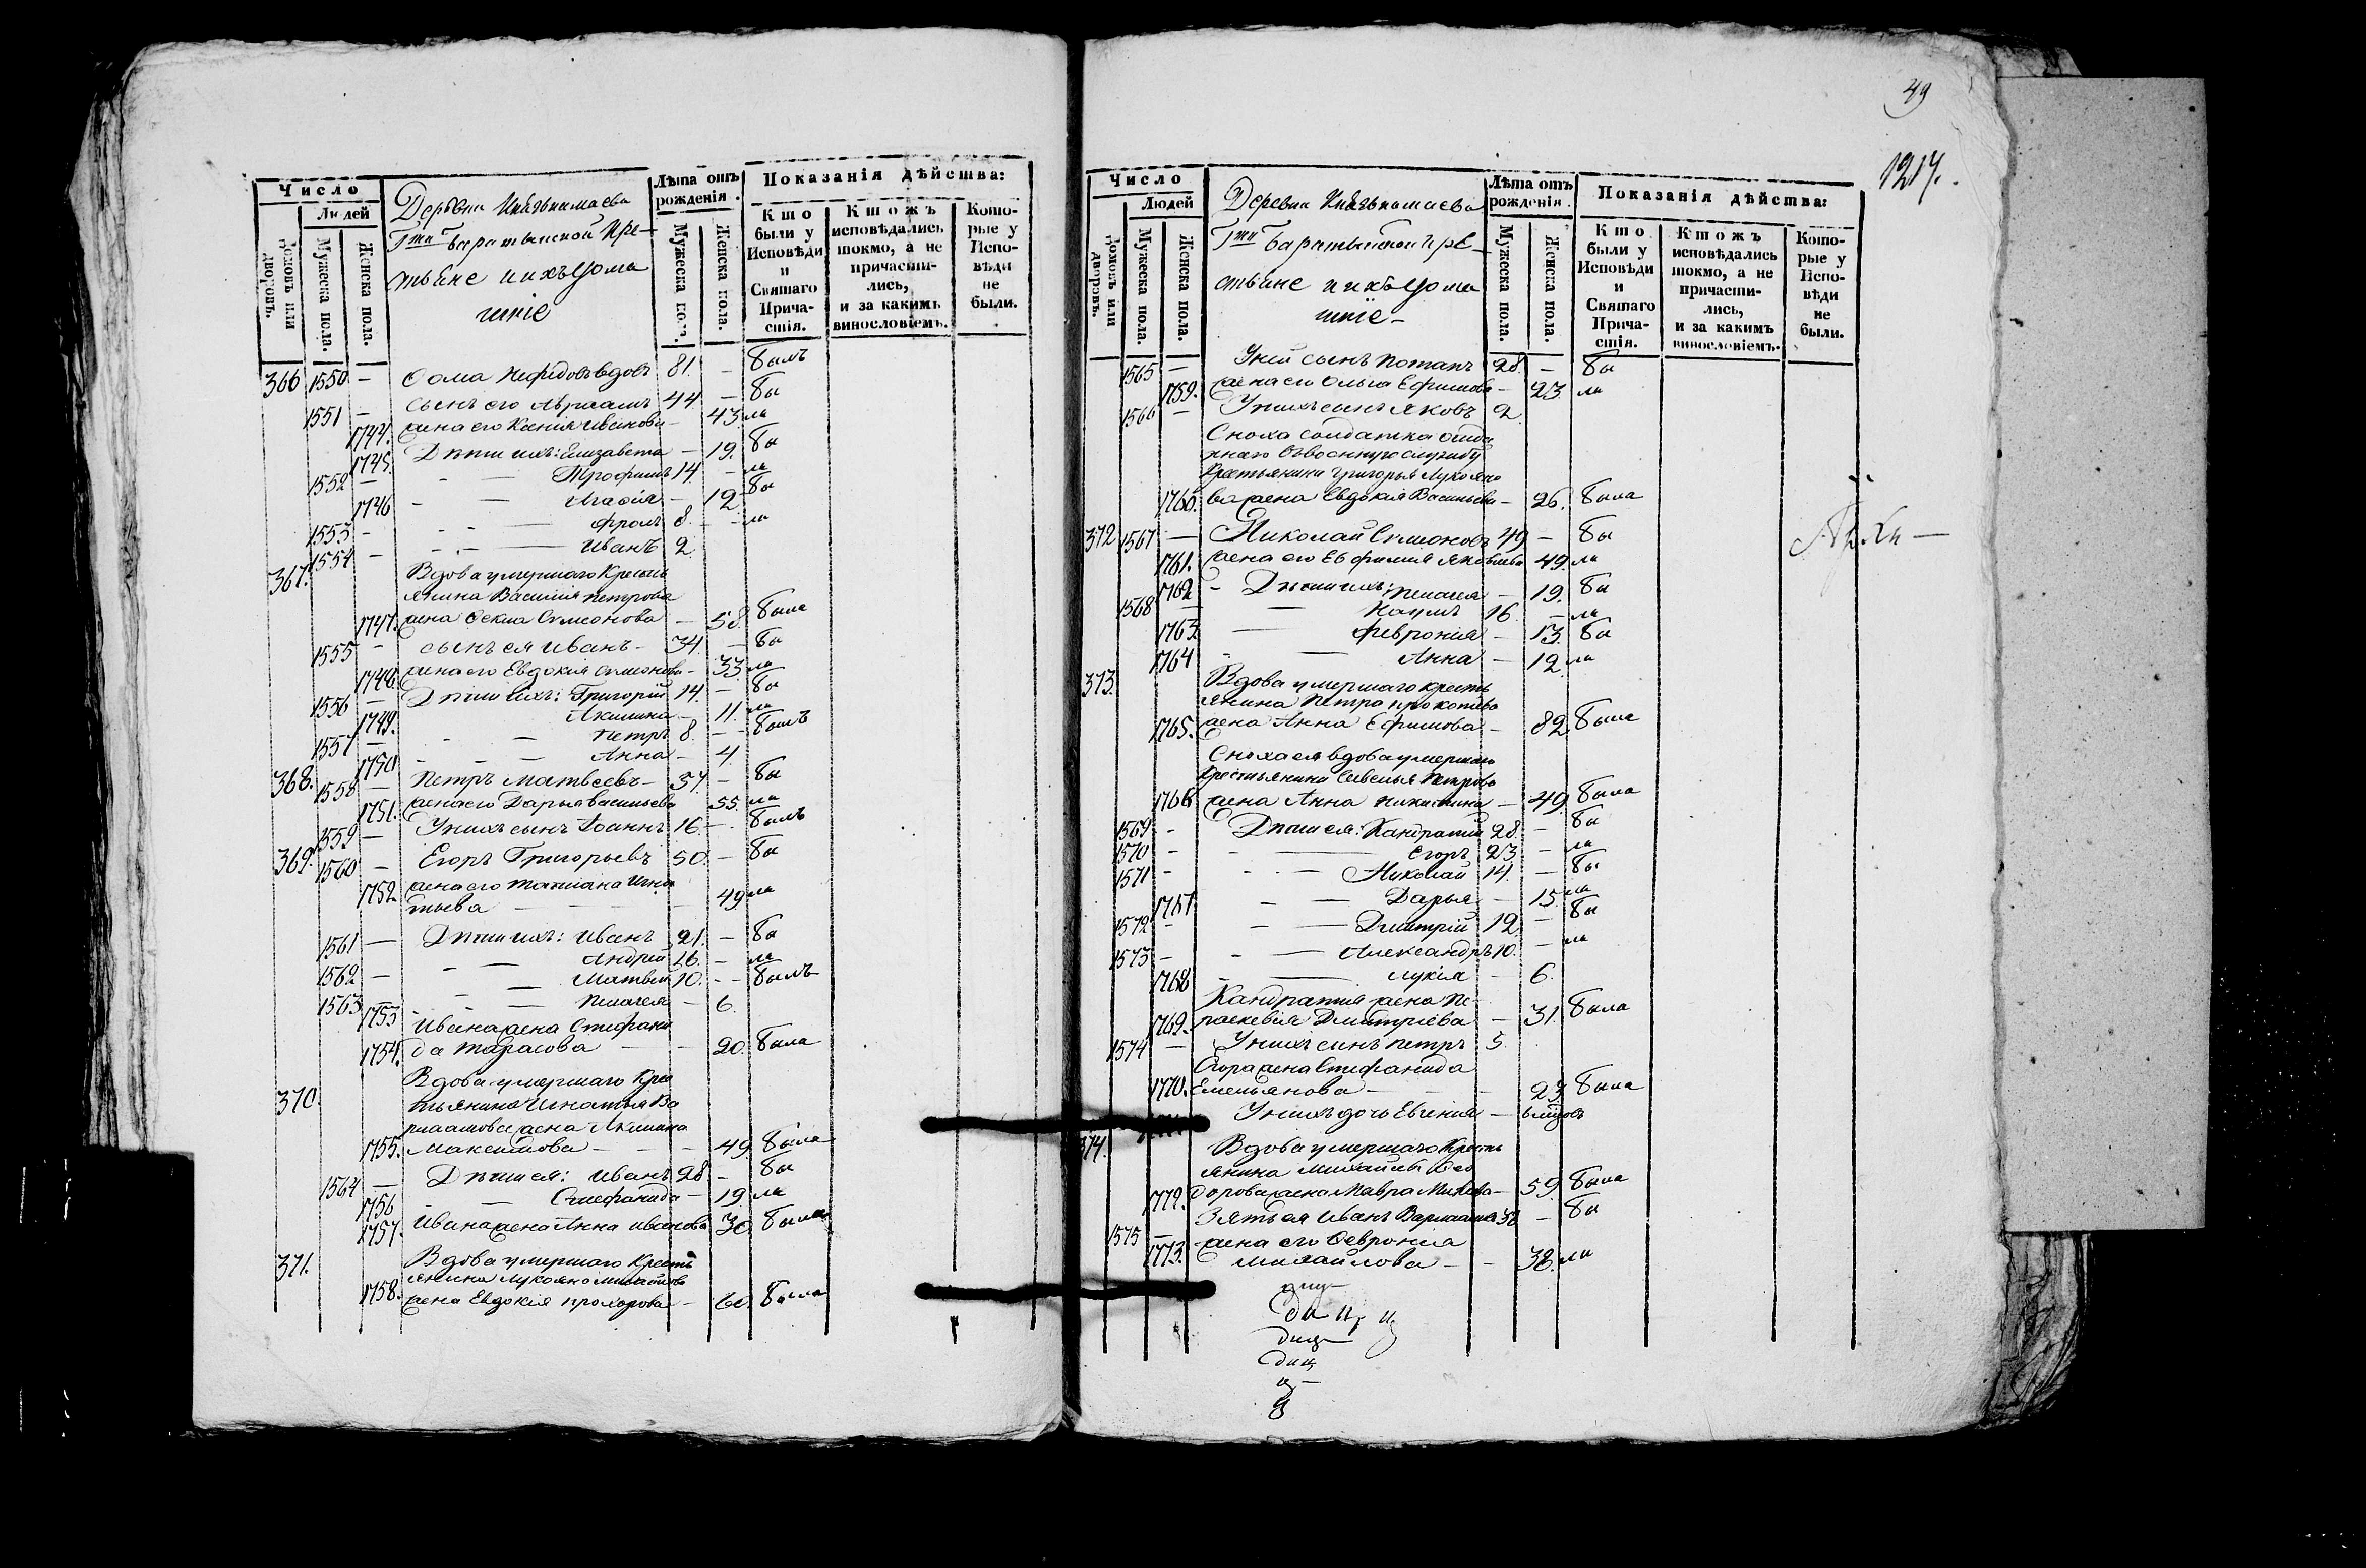 Число
Людей
Домовъ или дворовъ.
Мужеска пола.
Женска пола.
Деревни Князькамаева
Гжи Баратынской Кре-
стьяне и ихъ дома
шніе
Лѣта отъ рожденія.
Мужеска пола.
Женска пола.
Показанія дѣйства:
Кто были у Исповѣди и Святаго Причастія.
Ктожъ исповѣдались токмо, а не причастились, и за какимъ винословіемъ.
Которые у Исповѣди не были.
366 1550 — Ѳома Нефедовъ вдовъ 81. — былъ
1551 — сынъ его Авраамъ 44 — бы
1744. жена его Ксенія Иванова — 43. ли
1745. Дѣти ихъ: Елизавета — 19. бы
1552 — Трофимъ 14 — ли
1746 Агафія — 12. бы
1553 — Фролъ 8. — ли
1554 — Иванъ 2
367. Вдова умершаго Кресть
янина Василія Петрова
1747. жена Фекла Симонова — 58. была
1555 — сынъ ея Иванъ — 34. — бы
1748. жена его Евдокія Симонова — 33. ли
1556 — Дѣти ихъ: Григорій 14. — бы
1749. Акилина — 11. ли
1557 — Петръ 8. — былъ
1750 Анна — 4.
368. 1558 — Петръ Матвеевъ — 57. — бы
1751. жена его Дарья Васильева 55. ли
1559 — У нихъ сынъ Іоаннъ 16. — былъ
369. 1560 — Егоръ Григорьевъ 50. — бы
1752 жена его Татиана Игна
тьева — 49. ли
1561 — Дѣти ихъ: Иванъ 21. — бы
1562 — Андрей 16. — ли
1563 Матвей 10. — былъ
1753 Пелагея — 6.
Ивана жена Стефани
1754. да Тарасова — 20. была
370. Вдова умершаго Крес
тьянина Игнатья Ва
рлаамова жена Акилина
1755. Максимова — 49 была
1564 — Дѣти ея: Иванъ 28 — бы
1756 — Стефанида — 19. ли
1757. Ивана жена Анна Иванова 30. была
371. Вдова умершаго Кресть
янина Лукояна
1758. жена Евдокія Прохорова — 60. была
49
1217.
Число
Людей
Домовъ или дворовъ.
Мужеска пола.
Женска пола.
Деревни Князькамаева
Гжи Баратынской Кре-
стьяне и ихъ дома
шніе —
Лѣта отъ рожденія.
Мужеска пола.
Женска пола.
Показанія дѣйства:
Кто были у Исповѣди и Святаго Причастія.
Ктожъ исповѣдались токмо, а не причастились, и за какимъ винословіемъ.
Которые у Исповѣди не были.
1565 — У ней сынъ Потапъ 28. — бы
1759. жена его Ольга Ефимова — 23 ли
1566 — У нихъ сынъ Яковъ 2
Сноха солдатка отда
ннаго въ военную службу
Крестьянина Григорья Лукояно
1760. ва жена Евдокія Васильева — 26. была
372 1567 — Николай Симоновъ 49 — бы
1761. жена его Евфимія Яковлева 49. ли
1762 — Дѣти ихъ: Пелагея — 19. бы
1568 — Наумъ 16. — ли
1763. Феврония — 13. бы
1764 Анна — 12. ли
373. Вдова умершаго кресть
янина Петра Прокопьева
1765. жена Анна Ефимова — 82. была
Сноха ея вдова умершаго
Крестьянина Савелья Петрова
1766 жена Анна Никитина — 49. была
1569 — Дѣти ея: Кандратій 28. — бы
1570 — Егоръ 23 — ли
1571 — Николай 14. — бы
1767 Дарья — 15. ли
1572 — Дмитрій 12. — бы
1573 — Александръ 10. — ли
1768 Лукія — 6.
Кандратія жена Па-
1769. раскевія Дмитріева — 31. была
1574 — У нихъ сынъ Петръ 5.
Егора жена Стефанида
1770. Емельянова — 23. была
У нихъ дочь Евгения —
374. Вдова умершаго Кресть
янина Михайлы Фео
1772. дорова жена Мавра — 59. была
1575 — Зять ея Иванъ — бы
1773. жена его Феврония
Михайлова — 38. ли